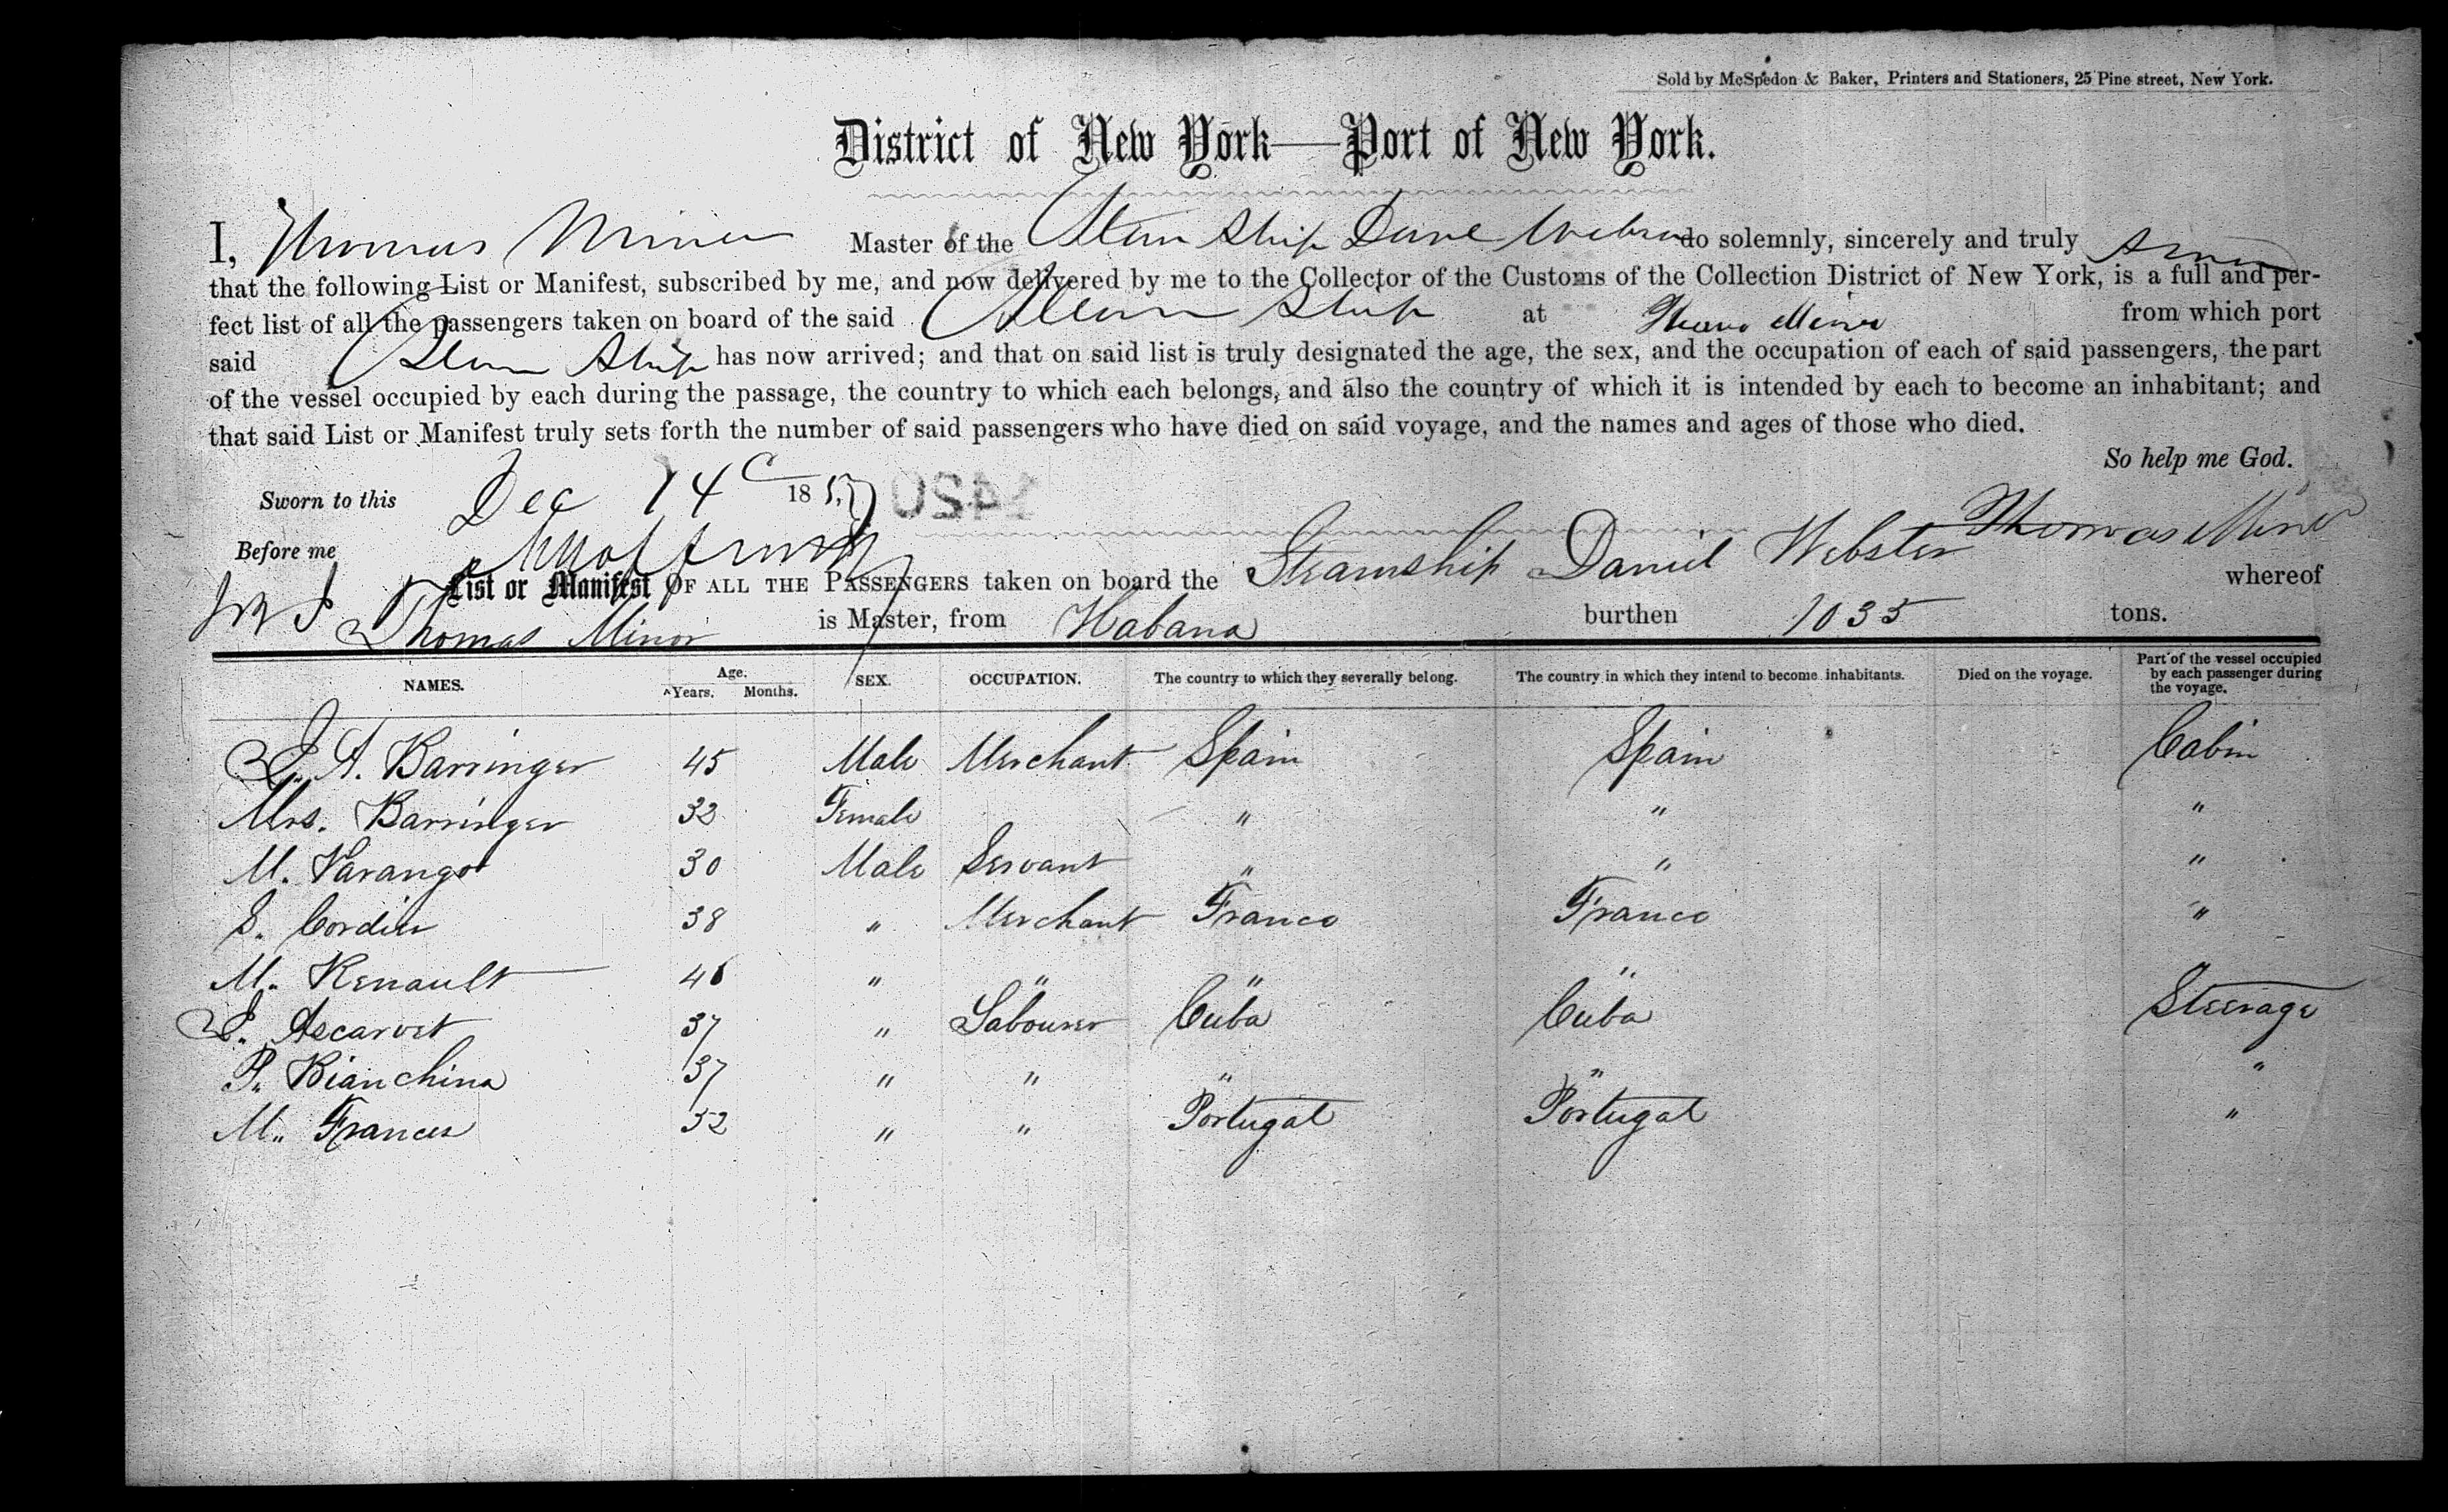 Sold by McSpedon & Baker, Printers and Stationers, 25 Pine street, New York.
District of New York—Port of New York.
I, Thomas Miner Master of the Steam Ship Danl Webster do solemnly, sincerely and truly
that the following List or Manifest, subscribed by me, and now delivered by me to the Collector of the Customs of the Collection District of New York, is a full and per-
fect list of all the passengers taken on board of the said Steam Ship at from which port
said Steam Ship has now arrived; and that on said list is truly designated the age, the sex, and the occupation of each of said passengers, the part
of the vessel occupied by each during the passage, the country to which each belongs, and also the country of which it is intended by each to become an inhabitant; and
that said List or Manifest truly sets forth the number of said passengers who have died on said voyage, and the names and ages of those who died.
So help me God.
Sworn to this Dec 14 18 1420
Thomas Miner
Before me
List or Manifest OF ALL THE PASSENGERS taken on board the Steamship Daniel Webster whereof
Thomas Minor is Master, from Habana burthen 1035 tons.
NAMES. Age. Years. Months. SEX. OCCUPATION. The country to which they severally belong. The country in which they intend to become inhabitants. Died on the voyage. Part of the vessel occupied by each passenger during the voyage.
A. Barringer 45 Male Merchant Spain Spain Cabin
Mrs. Barringer 32 Female " " "
M. Varangot 30 Male Servant " " "
Cordier 38 " Merchant France France "
M. Renault " " " "
Ascarret 37 " Labourer Cuba Cuba Steerage
P. Bianchina 37 " " " " "
M. Frances 32 " " Portugal Portugal "